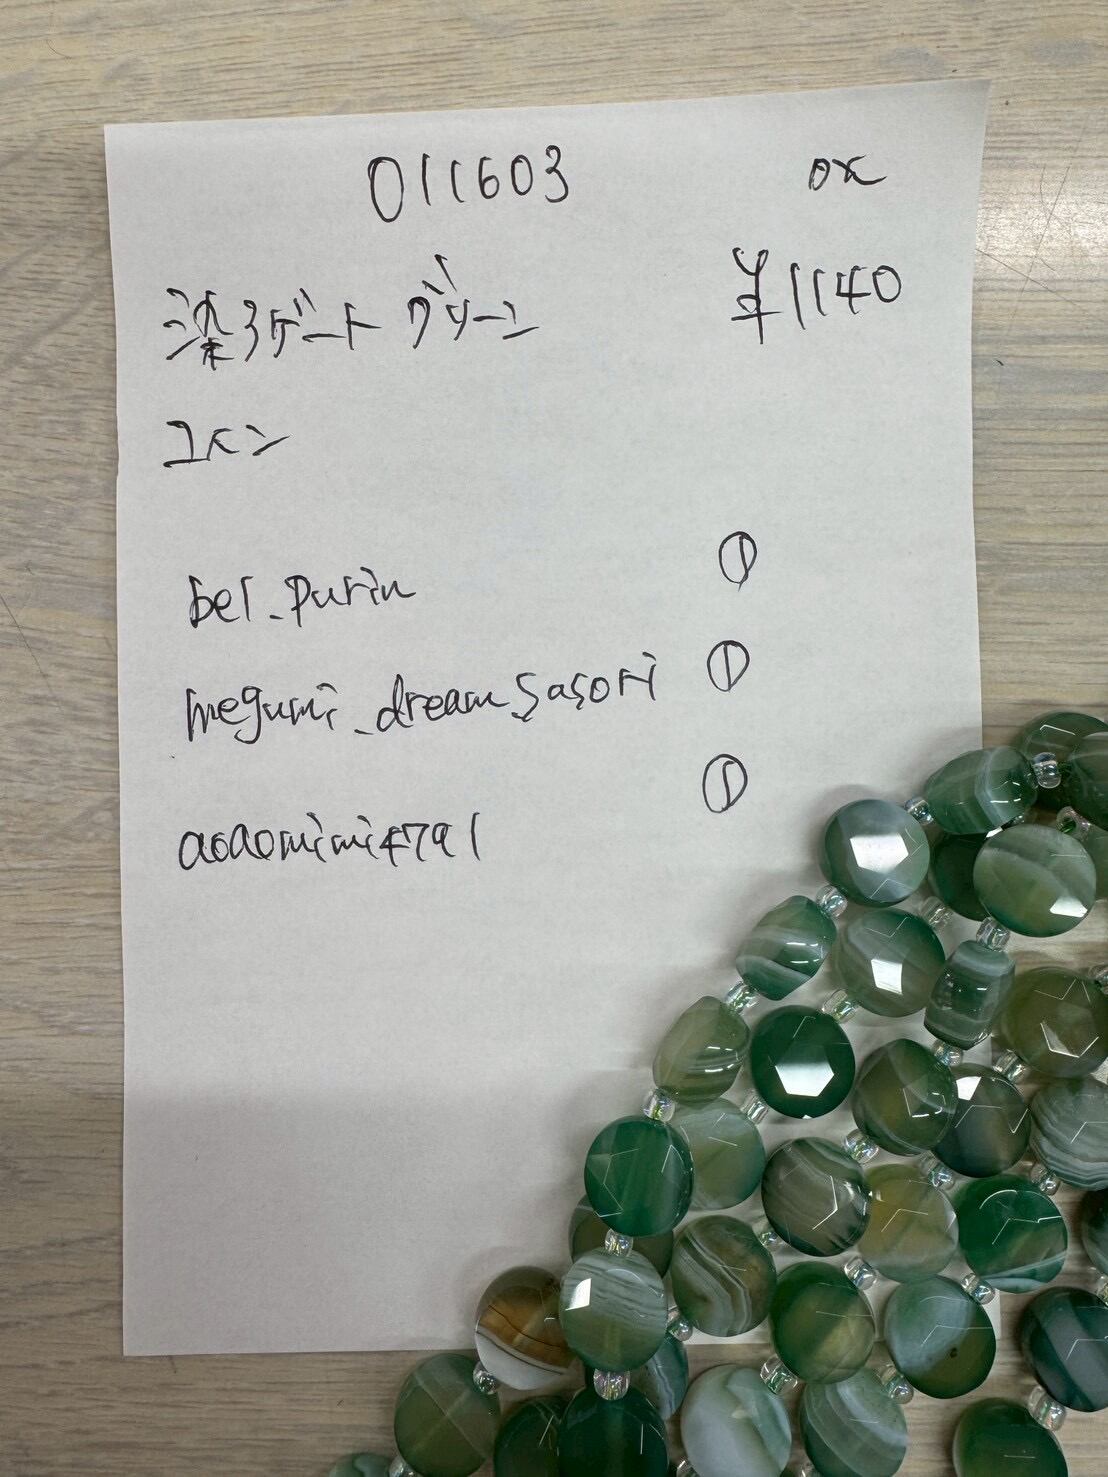 011603 OK
染アゲート グリーン ¥1140
コイン
bel_purin ①
megumi_dream_sasori ①
aoaomimi4791 ①